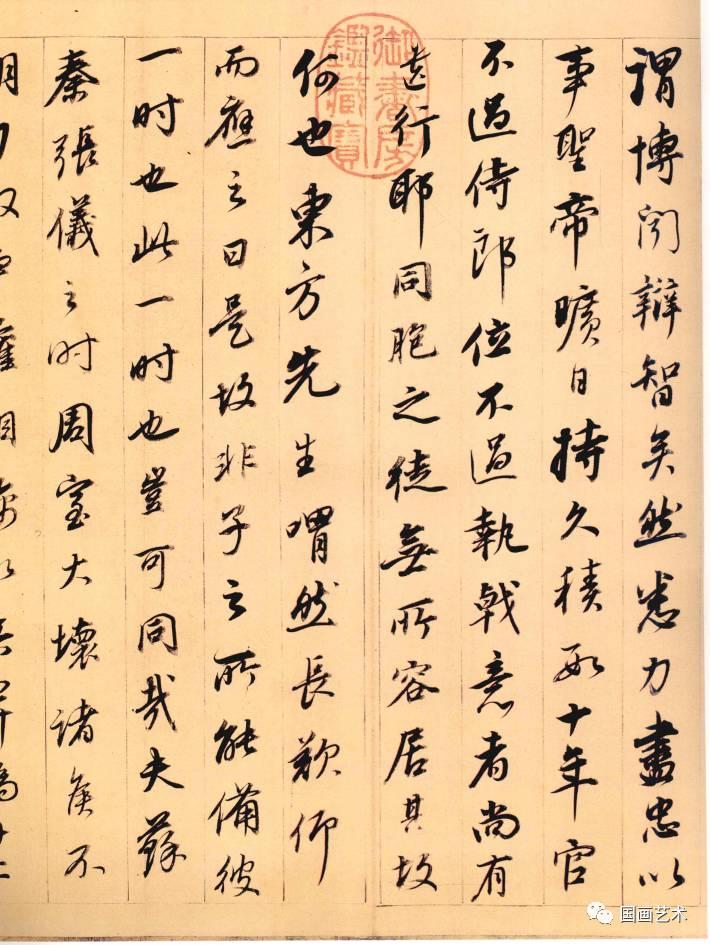 謂博聞辯智矣然悉力盡忠以
事聖帝曠日持久積數十年官
不過侍郎位不過執戟意者尚有
遺行耶同胞之徒無所容居其故
何也東方先生喟然長歎仰
而應之曰是故非子之所能備彼
一时也此一时也豈可同哉夫蘇
秦張儀之时周室大壞諸侯不
御書房
鑑藏寶
国画艺术